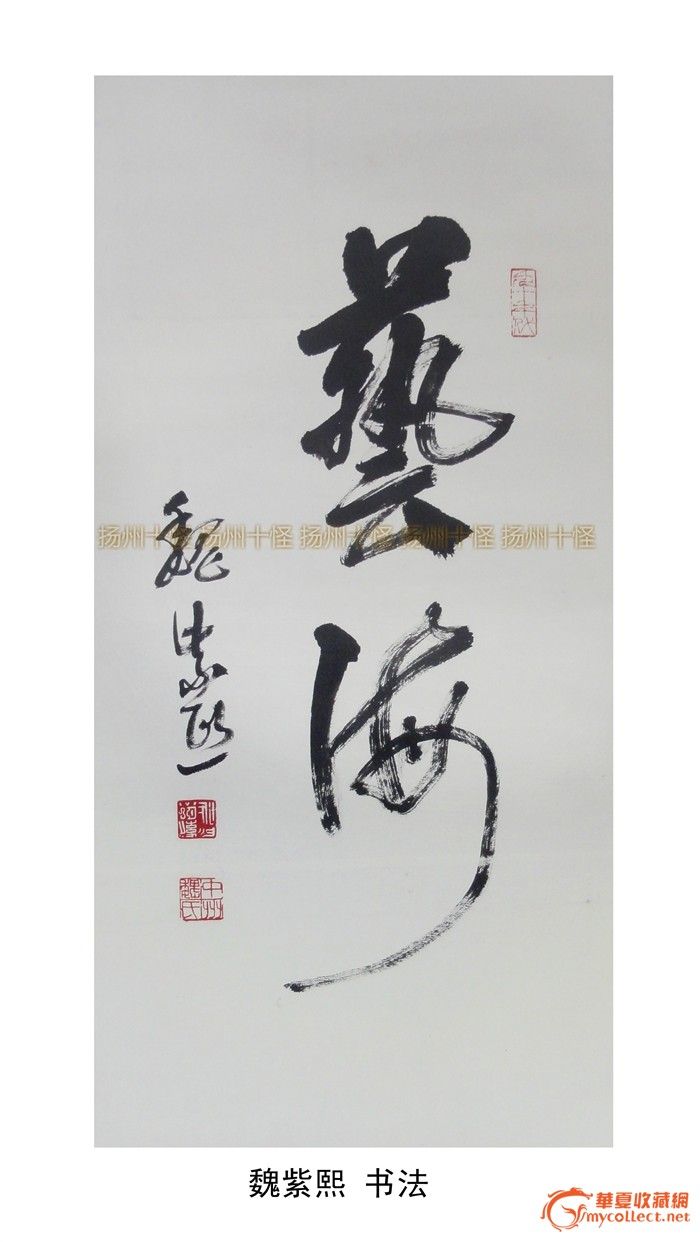 藝海
魏紫熙
中州
魏氏
扬州十怪 扬州十怪 扬州十怪 扬州十怪 扬州十怪
魏紫熙 书法
華夏收藏網
mycollect.net